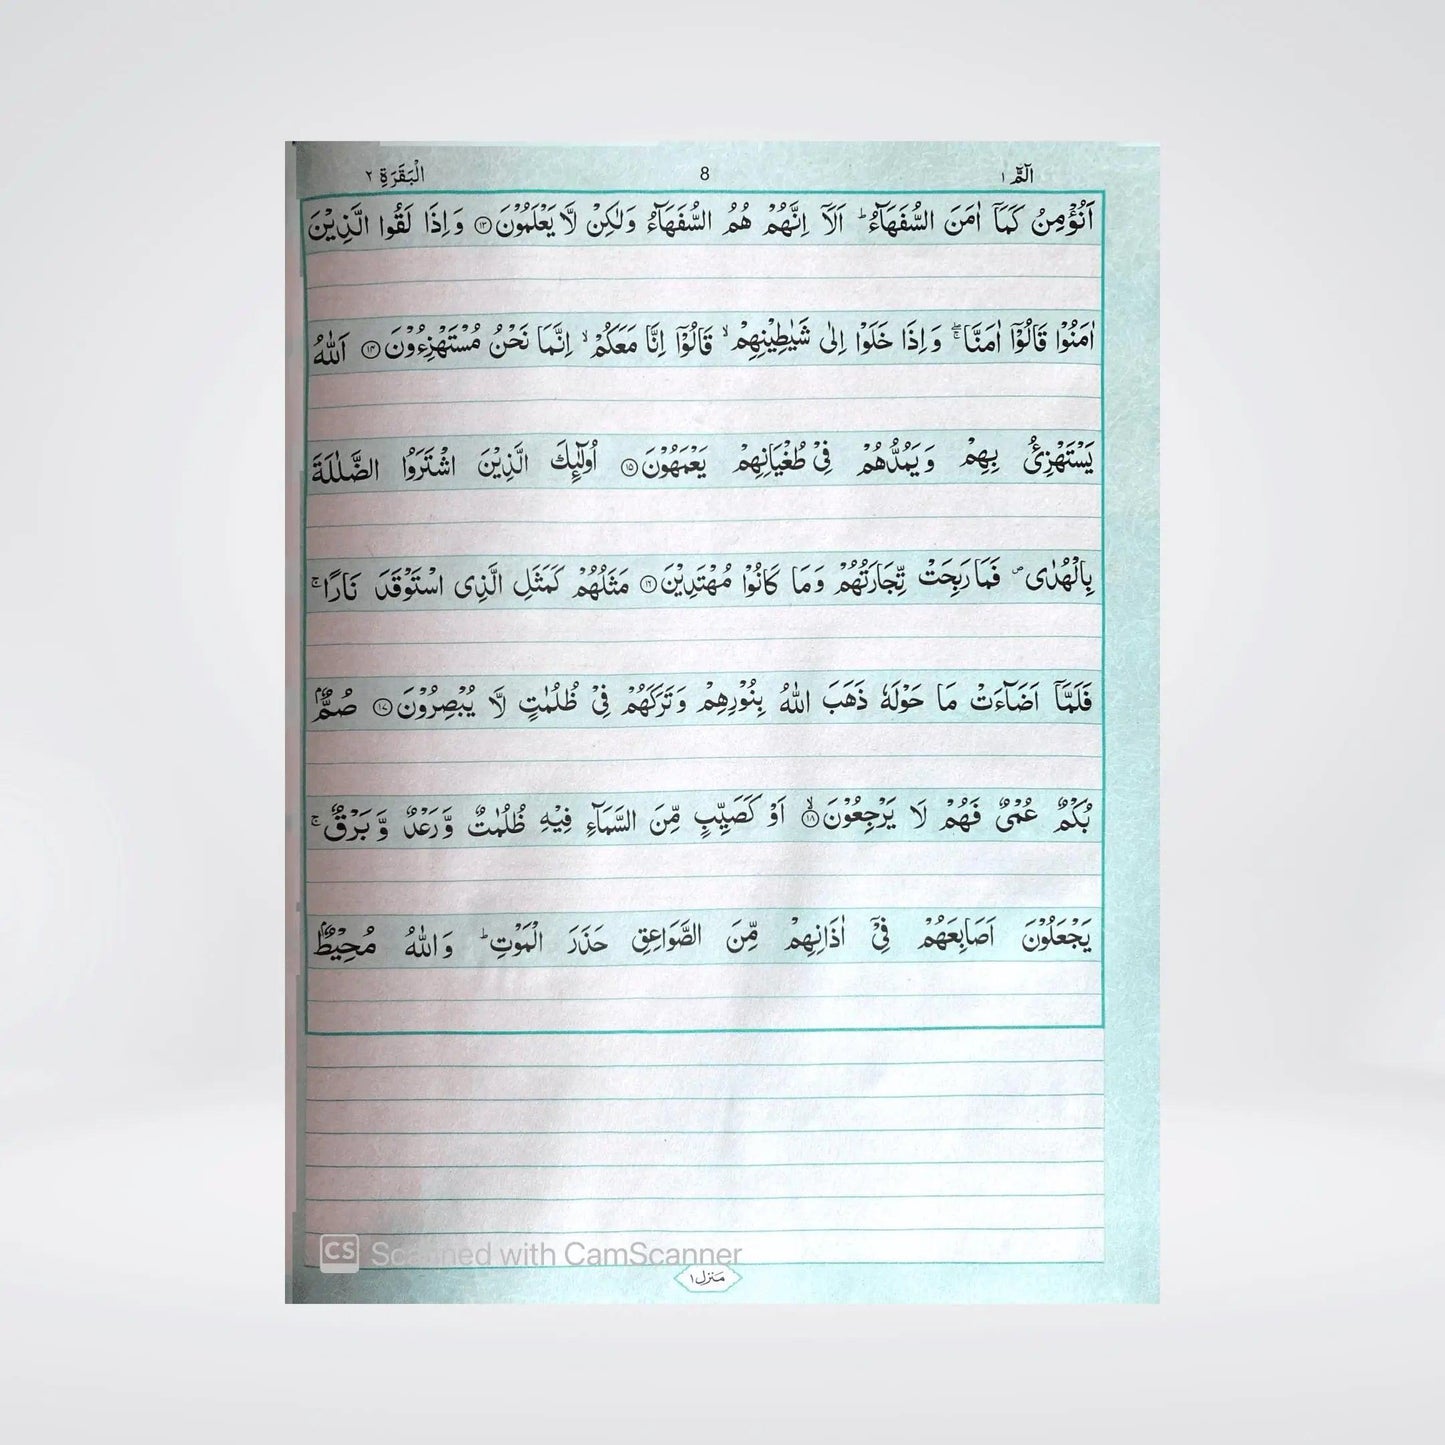 الٓمّٓ ١ 8 الْبَقَرَةِ ٢
اَنُؤْمِنُ كَمَاۤ اٰمَنَ السُّفَهَآءُ ؕ اَلَاۤ اِنَّهُمْ هُمُ السُّفَهَآءُ وَلٰكِنْ لَّا يَعْلَمُوْنَ ۝۱۳ وَاِذَا لَقُوا الَّذِيْنَ
اٰمَنُوْا قَالُوْۤا اٰمَنَّا ۖۚ وَاِذَا خَلَوْا اِلٰى شَيٰطِيْنِهِمْ ۙ قَالُوْۤا اِنَّا مَعَكُمْ ۙ اِنَّمَا نَحْنُ مُسْتَهْزِءُوْنَ ۝۱۴ اَللّٰهُ
يَسْتَهْزِئُ بِهِمْ وَيَمُدُّهُمْ فِىْ طُغْيَانِهِمْ يَعْمَهُوْنَ ۝۱۵ اُولٰٓئِكَ الَّذِيْنَ اشْتَرَوُا الضَّلٰلَةَ
بِالْهُدٰى ۪ فَمَا رَبِحَتْ تِّجَارَتُهُمْ وَمَا كَانُوْا مُهْتَدِيْنَ ۝۱۶ مَثَلُهُمْ كَمَثَلِ الَّذِى اسْتَوْقَدَ نَارًا ۚ
فَلَمَّاۤ اَضَآءَتْ مَا حَوْلَهٗ ذَهَبَ اللّٰهُ بِنُوْرِهِمْ وَتَرَكَهُمْ فِىْ ظُلُمٰتٍ لَّا يُبْصِرُوْنَ ۝۱۷ صُمٌّۢ
بُكْمٌ عُمْىٌ فَهُمْ لَا يَرْجِعُوْنَ ۝۱۸ۙ اَوْ كَصَيِّبٍ مِّنَ السَّمَآءِ فِيْهِ ظُلُمٰتٌ وَّرَعْدٌ وَّبَرْقٌ ۚ
يَجْعَلُوْنَ اَصَابِعَهُمْ فِىْۤ اٰذَانِهِمْ مِّنَ الصَّوَاعِقِ حَذَرَ الْمَوْتِ ؕ وَاللّٰهُ مُحِيْطٌۢ
CS Scanned with CamScanner
منزل ١